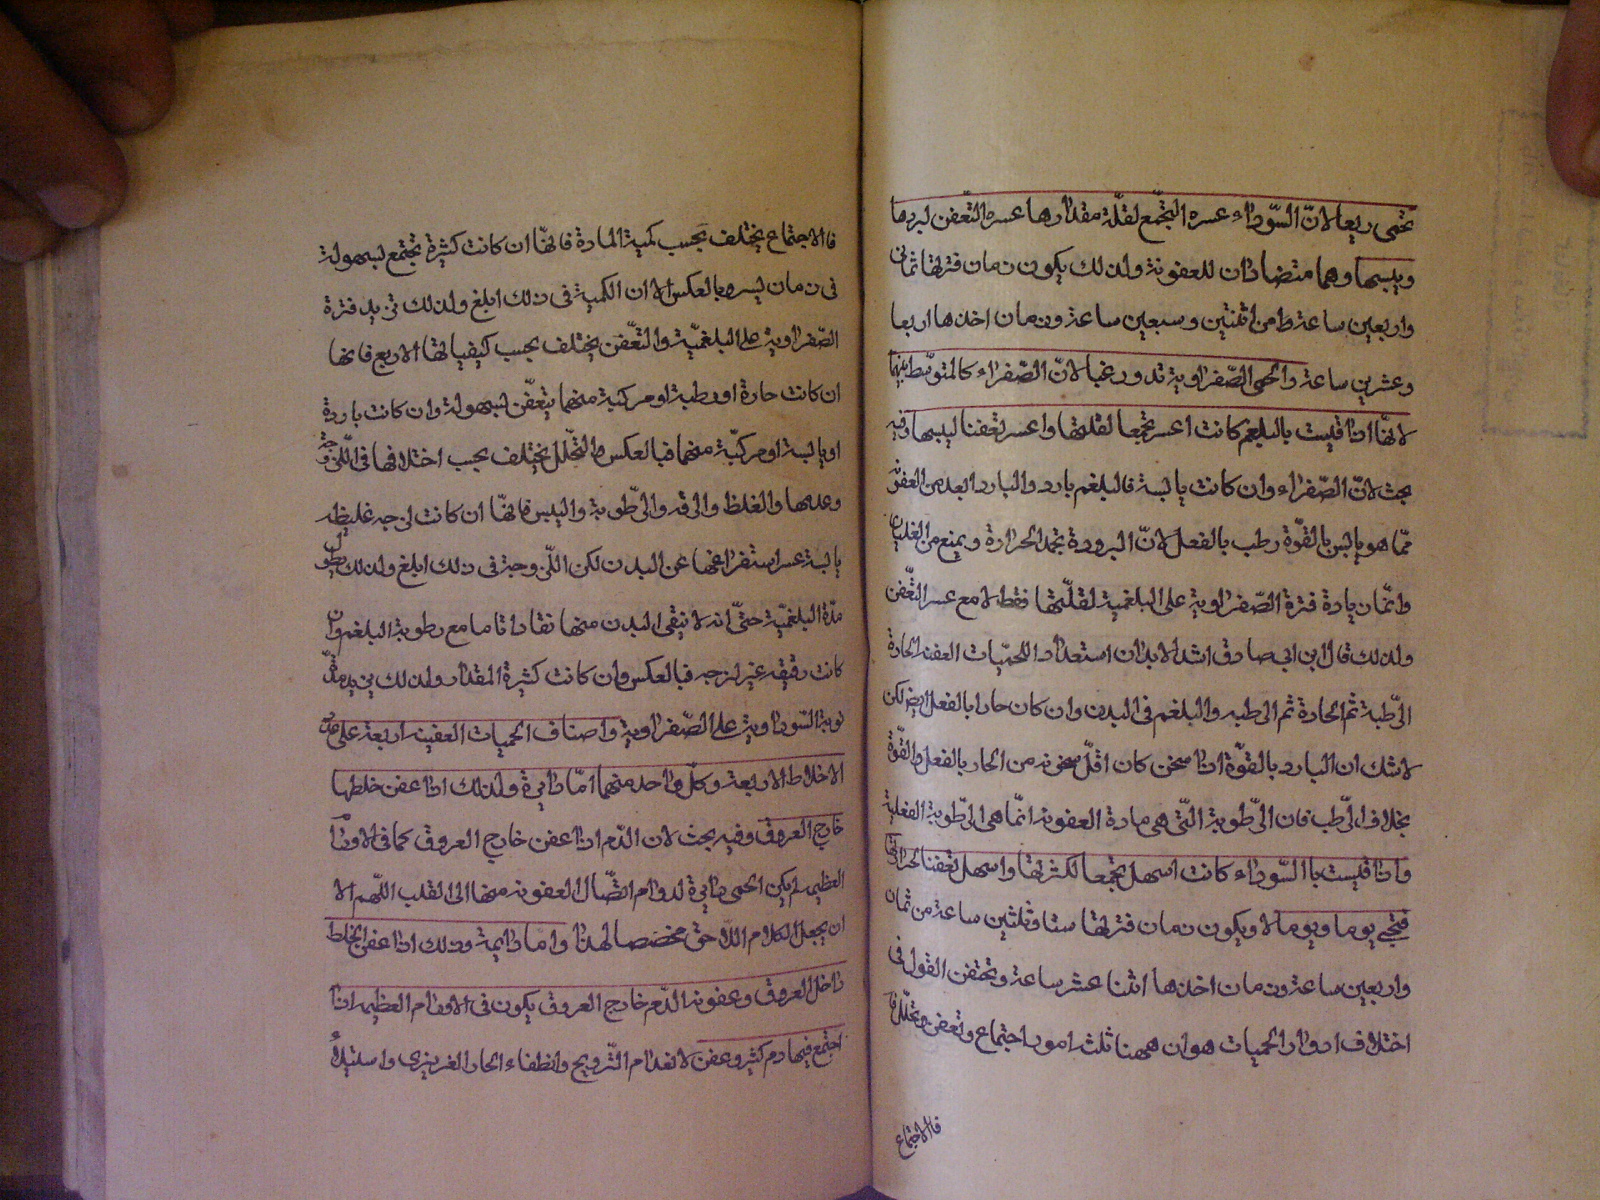 تحمى ربعا لانّ السّوداء عسره التجمّع لقلّة مقدارها عسرة التعّفن لبردها
ويبسها وهما متضادان للعفونة ولذلك يكون زمان فترتها ثمانى
واربعين ساعة من اثنتين وسبعين ساعة وزمان اخذها اربعا
وعشرين ساعة والحمى الصّفراوية تدور غبا لانّ الصّفراء كالمتوسّط بينهما
لانّها اذا قيست بالبلغم كانت اعسر تجمعا لقلتها واعسر تعفنا ليبسها وفيه
بحث لانّ الصّفراء وان كانت يابسة فالبلغم بارد والبارد ابعد من العفونة
ممّا هو يابس بالقوّة رطب بالفعل لانّ البرودة تجمد الحرارة ويمنع من الغليان
وانّما زيادة فترة الصّفراوية على البلغمية لقلّتها فقط لا مع عسر التعّفن
ولذلك قال ابن ابى صادق اشد الابدان استعدادا للحميّات العفنه الحادة
الرّطبة ثم الحادة ثم الرطبه والبلغم فى البدن وان كان حارا بالفعل ايضا لكن
لا شك ان البارد بالقوّة اذا سخن كان اقلّ سخونه من الحار بالفعل والقوّة
بخلاف الرّطب فان الرّطوبة التّى هى مادة العفونه انّما هى الرّطوبة الفعلية
واذا قيست بالسّوداء كانت اسهل تجمعا لكثرتها واسهل تعفنا لحرارتها
فتجئ يوما ويوما لا ويكون زمان فترتها ستا وثلثين ساعة من ثمان
واربعين ساعة وزمان اخذها اثنا عشر ساعة وتحقق القول فى
اختلاف ادوار الحميات هو ان ههنا ثلثه امور اجتماع وتعفن وتحلّل
فاالاجتماع
فاالاجتماع يختلف بحسب كمية المادة فانهّا ان كانت كثيرة تجتمع لسهولة
فى زمان يسير وبالعكس الا ان الكمية فى ذلك ابلغ ولذلك تزيد فترة
الصّفراوية على البلغميّة والتعّفن يختلف بحسب كيفياتها الاربع فانها
ان كانت حارة او رطبة او مركبة منهما يتعفّن لسهولة وان كانت باردة
او يابسة او مركبّة منهما فبالعكس والتحّلل يختلف بحسب اختلافها فى اللّزوجة
وعدمها والغلظ والرقه والرّطوبة واليبس فانهّا ان كانت لزجه غليظه
يابسة عسر استفراغها عن البدن لكن اللّزوجة فى ذلك ابلغ ولذلك يطول
مدّة البلغميّة حتّى انه لا ينقى البدن منها نقاء تاما مع رطوبة البلغم وان
كانت رقيقه غير لزجه فبالعكس وان كانت كثيرة المقدار ولذلك يزيد مدّة
نوبة السّوداوية على الصّفراوية واصناف الحميات العفينه اربعة على عدد
الاخلاط الاربعة وكلّ واحد منهما امّا دايرة ولذلك اذا عفن خلطها
خارج العروق وفيه بحث لان الدّم اذا عفن خارج العروق كما فى الاورام
العظيمه لم يكن الحمى دايرة لدوام اتصّال العفونه منها الى القلب اللّهم الا
ان يجعل الكلام اللاحق مخصصا لهذا واما دايمة وذلك اذا عفن الخلط
داخل العروق وعفونه الدّم خارج العروق يكون فى الاورام العظيمه اذا
اجتمع فيها دم كثير وعفن لانعدام التّرويح وانطفاء الحار الغريزى واستيلاء